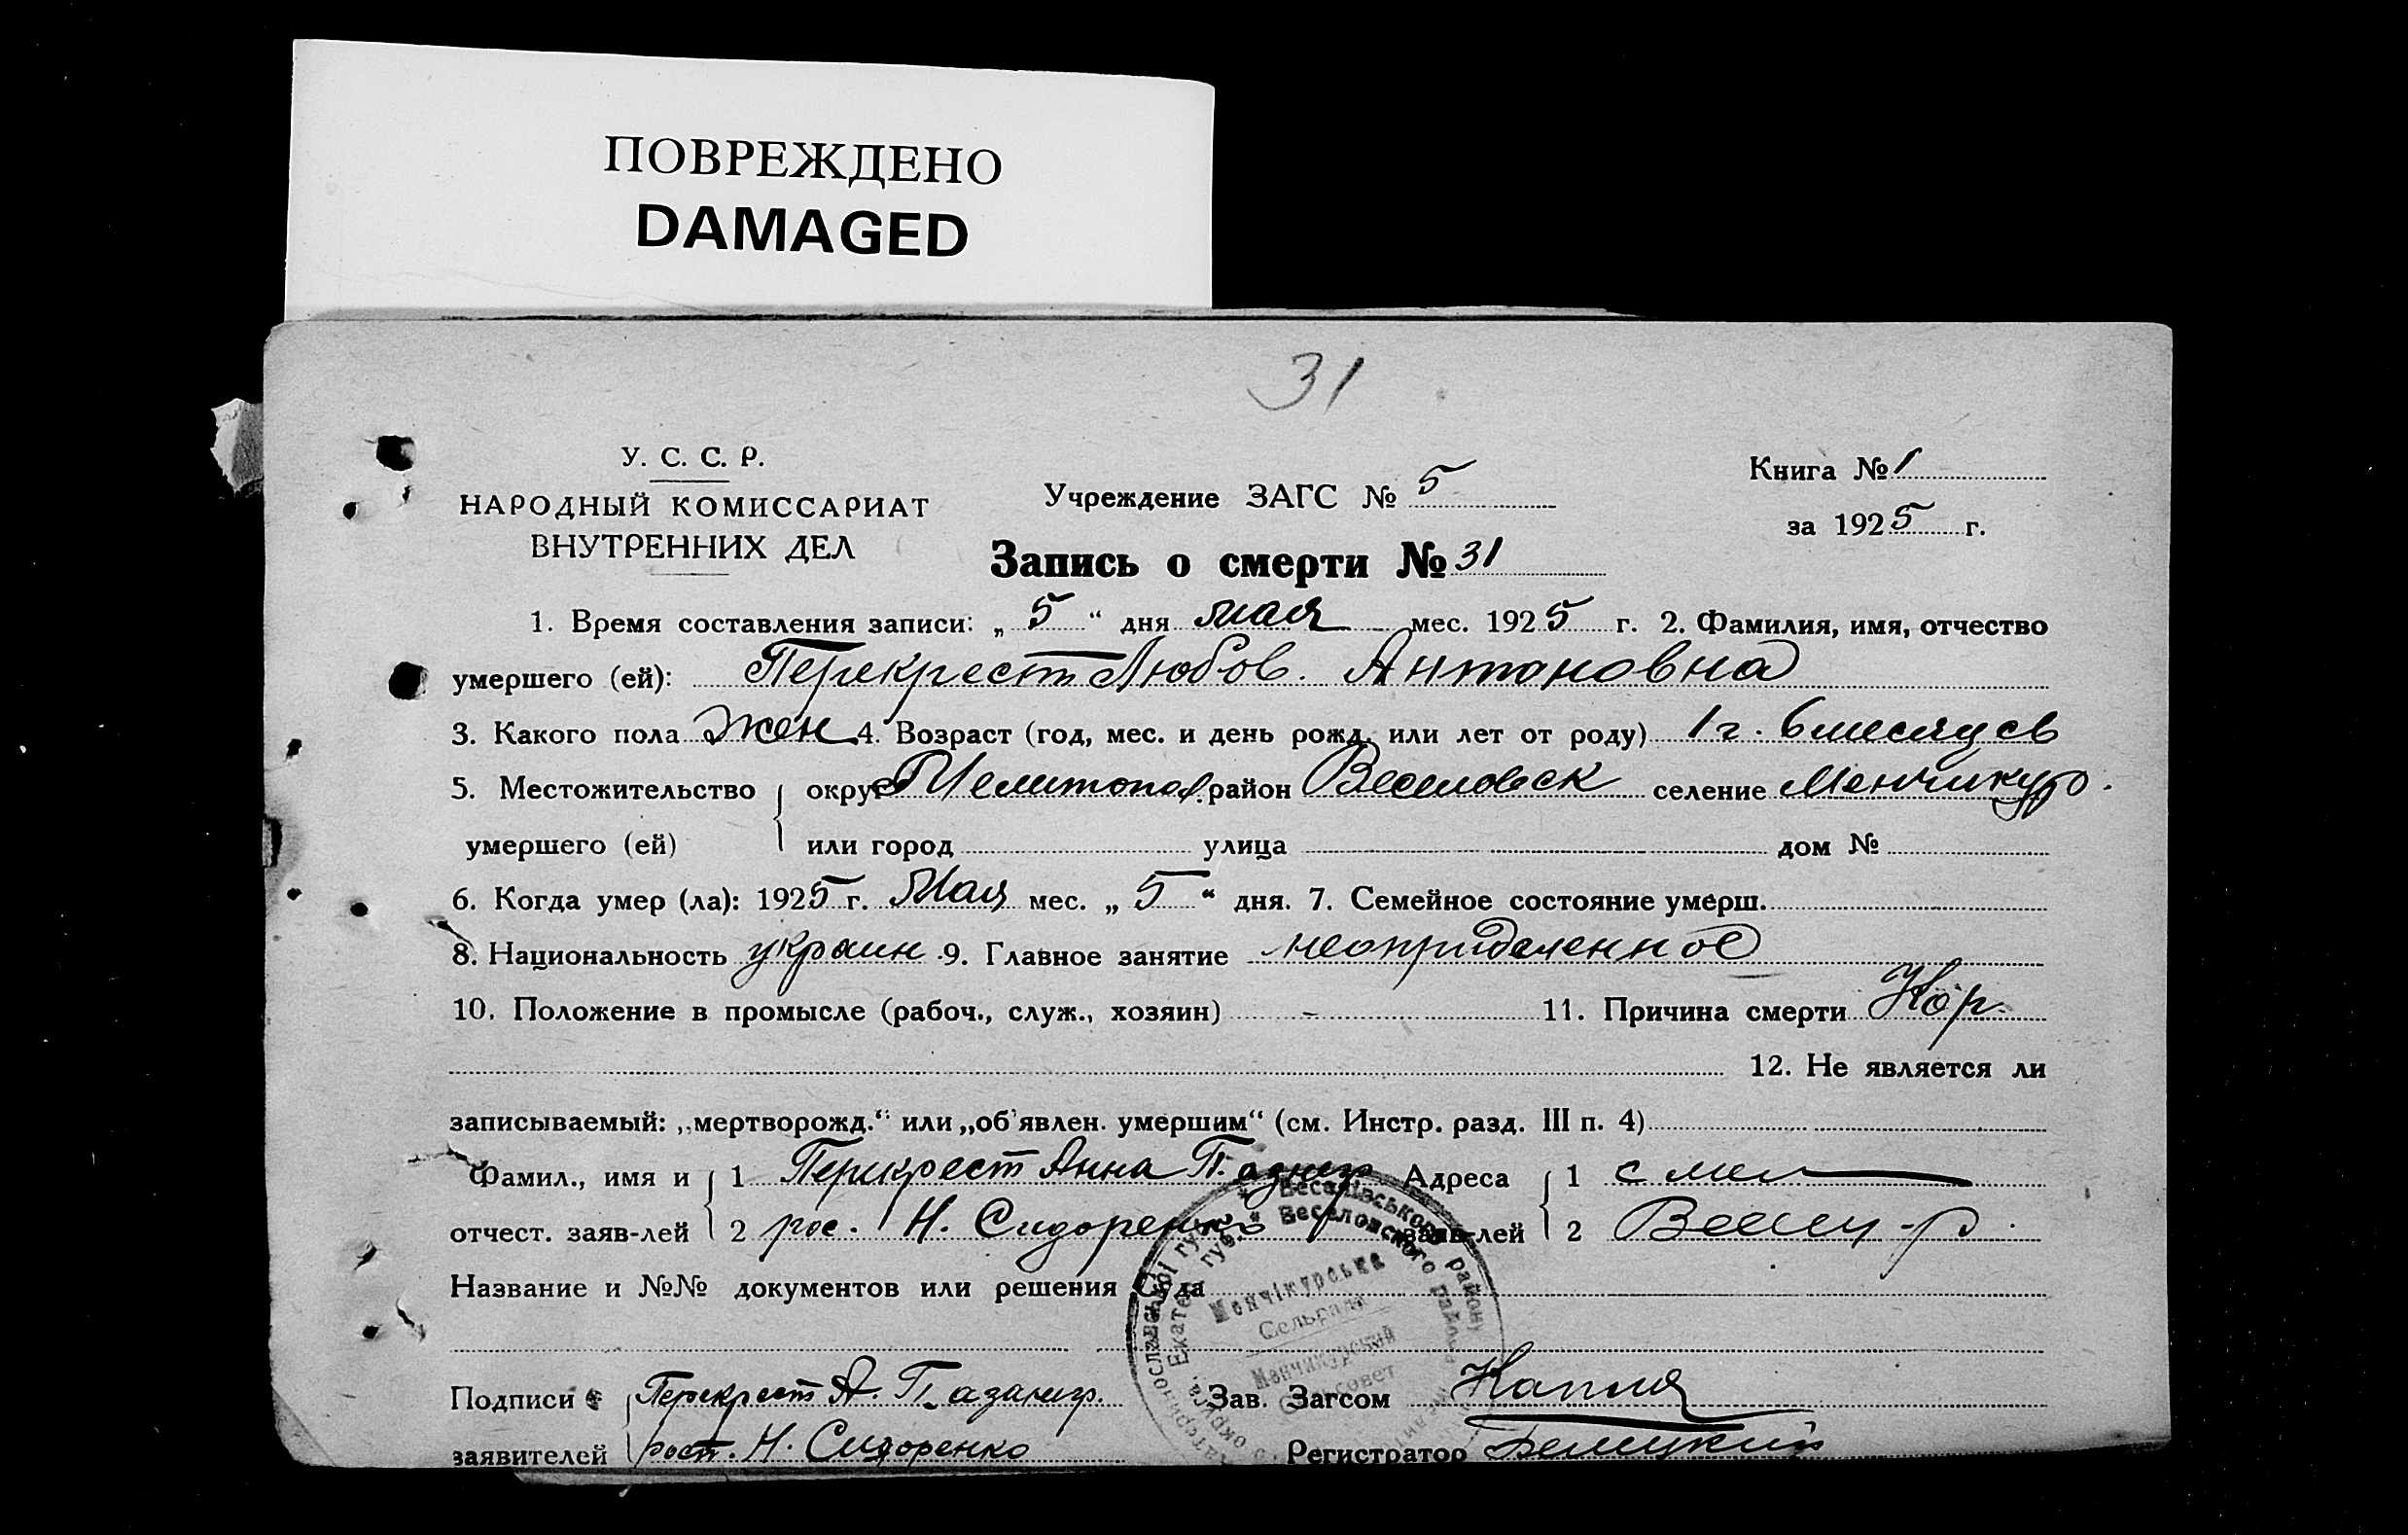 ПОВРЕЖДЕНО
DAMAGED
31
У. С. С. Р.
НАРОДНЫЙ КОМИССАРИАТ
ВНУТРЕННИХ ДЕЛ
Учреждение ЗАГС № 5
Книга № 1
за 1925 г.
Запись о смерти № 31
1. Время составления записи: „ 5 “ дня мая мес. 1925 г. 2. Фамилия, имя, отчество
умершего (ей): Перекрест Любов. Антоновна
3. Какого пола жен 4. Возраст (год, мес. и день рожд. или лет от роду) 1 г. 6 месяцев
5. Местожительство округ Мелитопол. район Веселовск селение Менчикур.
умершего (ей) или город улица дом №
6. Когда умер (ла): 1925 г. Мая мес. „ 5 “ дня. 7. Семейное состояние умерш.
8. Национальность украин 9. Главное занятие неоприделенное
10. Положение в промысле (рабоч., служ., хозяин) - 11. Причина смерти Кор.
12. Не является ли
записываемый: „мертворожд.“ или „об'явлен. умершим“ (см. Инстр. разд. III п. 4)
Фамил., имя и 1 Перикрест Анна Адреса 1 с мен
отчест. заяв-лей 2 рос. Н. Сидоренко заяв-лей 2
Название и №№ документов или решения Суда
Веселівського району
Екатер. губ. * Веселовского района
Менчікурська
Сельрада
Менчикурский
Сельсовет
Подписи Перекрест А. Зав. Загсом Капля
заявителей рост. Н. Сидоренко Регистратор Белицкий